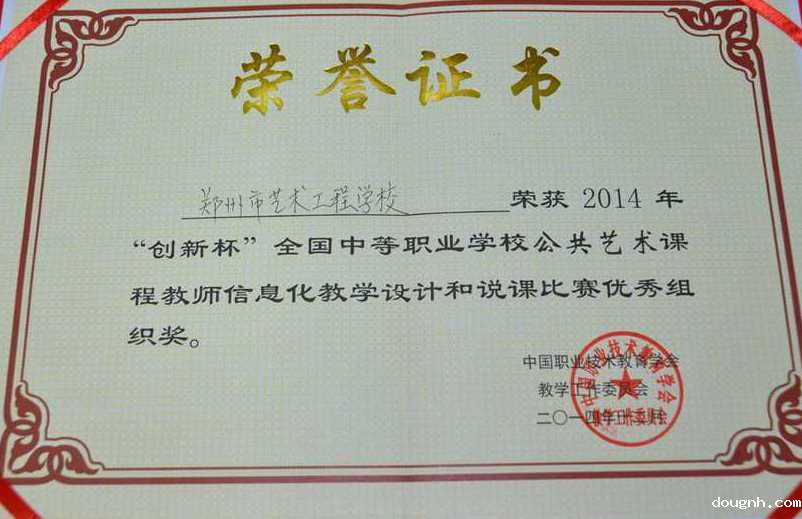 荣誉证书
郑州市艺术工程学校 荣获 2014 年
“创新杯”全国中等职业学校公共艺术课
程教师信息化教学设计和说课比赛优秀组
织奖。
中国职业技术教育学会
教学工作委员会
二〇一四年十
月
中国职业技术教育学会
教学工作委员会
dougnh.com